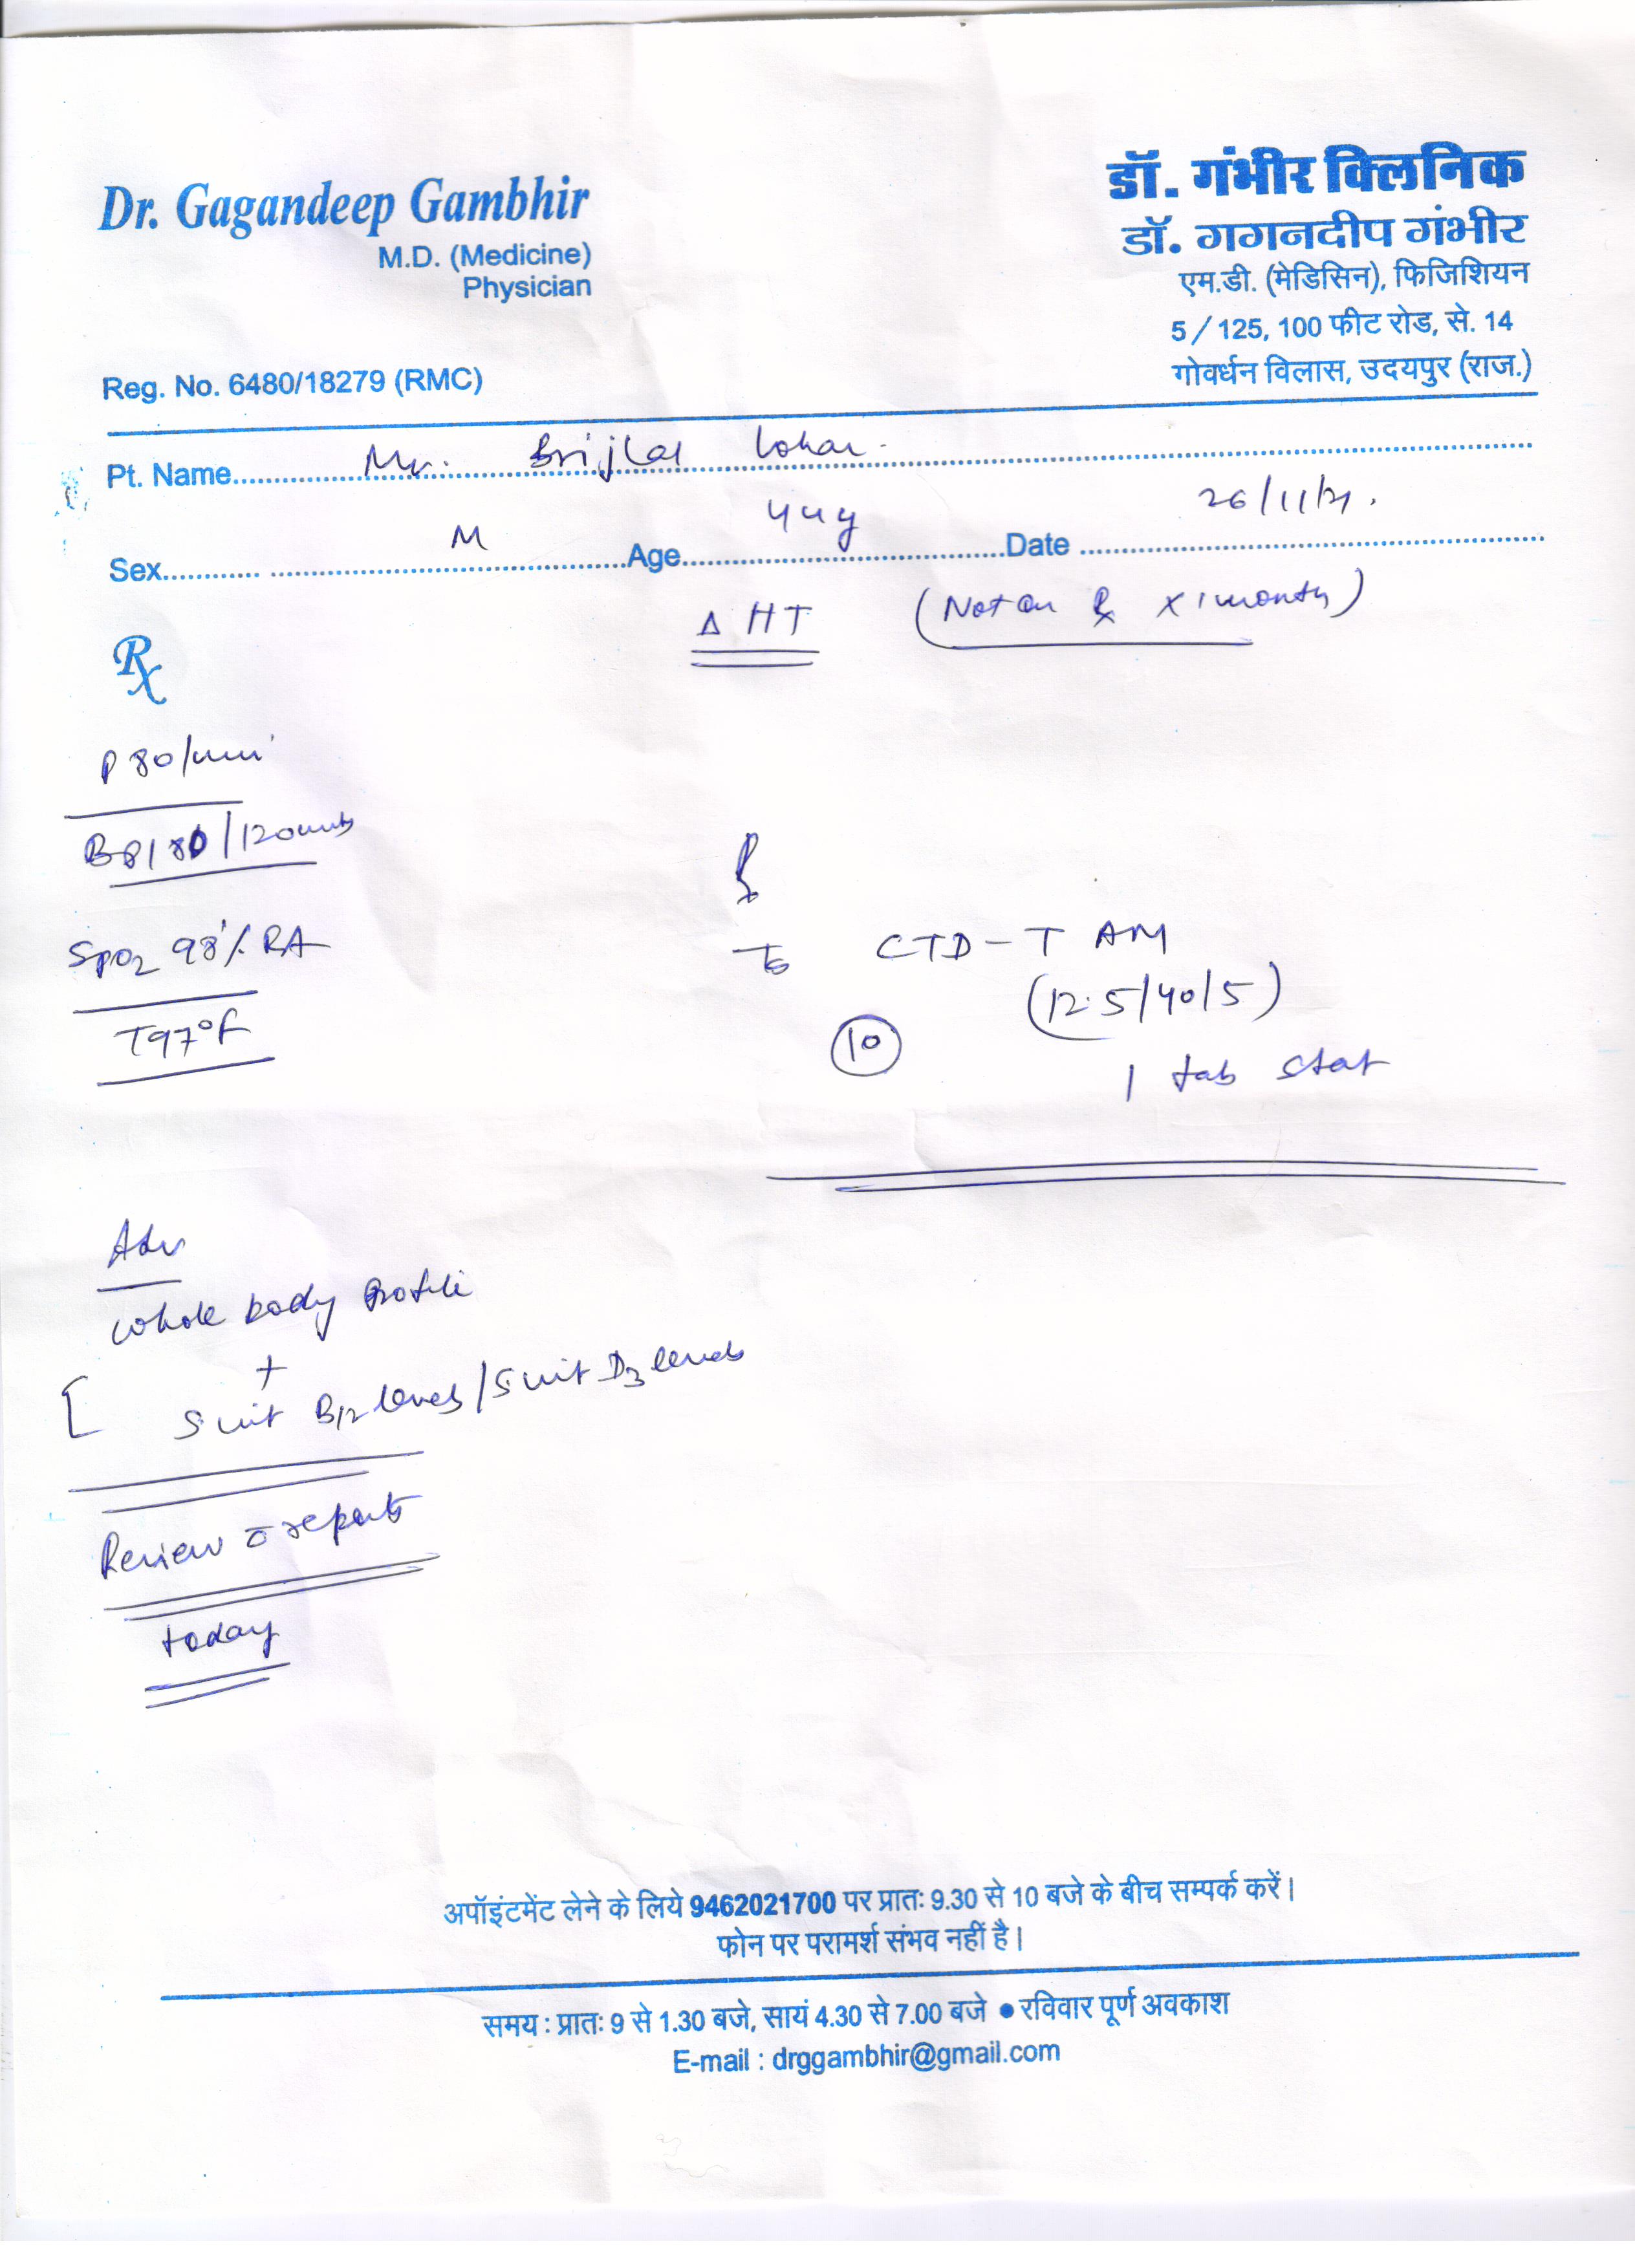 Dr. Gagandeep Gambhir
M.D. (Medicine)
Physician
Reg. No. 6480/18279 (RMC)
डॉ. गंभीर क्लिनिक
डॉ. गगनदीप गंभीर
एम.डी. (मेडिसिन), फिजिशियन
5 / 125, 100 फीट रोड, से. 14
गोवर्धन विलास, उदयपुर (राज.)
Pt. Name Mr. Brijlal Lohar
Sex M Age 44y Date 26/11/21.
Δ HT (Not on Rx x 1 month)
Rx
P 80/min
BP 180/120
SpO2 98% RA
T 97°F
Rx
CTD-T AM
(12.5/40/5)
10
1 tab stat
Adv
Whole body Profile
+
S vit B12 levels / S vit D3 levels
Review c reports
today
अपॉइंटमेंट लेने के लिये 9462021700 पर प्रातः 9.30 से 10 बजे के बीच सम्पर्क करें।
फोन पर परामर्श संभव नहीं है।
समय : प्रातः 9 से 1.30 बजे, सायं 4.30 से 7.00 बजे ● रविवार पूर्ण अवकाश
E-mail : drggambhir@gmail.com